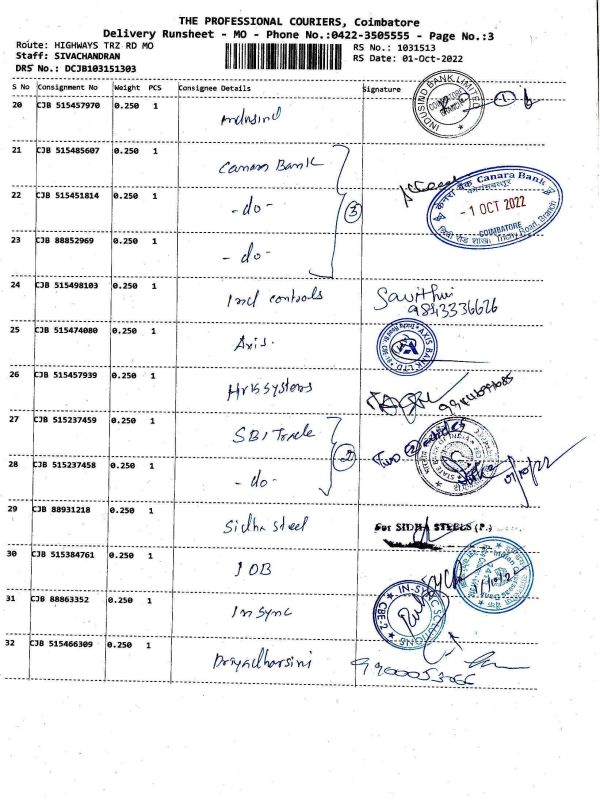 THE PROFESSIONAL COURIERS, Coimbatore
Delivery Runsheet - MO - Phone No.:0422-3505555 - Page No.:3
Route: HIGHWAYS TRZ RD MO
RS No.: 1031513
Staff: SIVACHANDRAN
RS Date: 01-Oct-2022
DRS No.: DCJB103151303
S No Consignment No Weight PCS Consignee Details Signature
20 CJB 515457970 0.250 1 Indusind
INDUSIND BANK LIMITED COIMBATORE BRANCH
1
21 CJB 515485607 0.250 1 Canara Bank
22 CJB 515451814 0.250 1 -do-
3
केनरा बैंक Canara Bank
- 1 OCT 2022
COIMBATORE
Trichy Road Branch
23 CJB 88852969 0.250 1 -do-
24 CJB 515498103 0.250 1 Incl controls
Savithri
9843336626
25 CJB 515474080 0.250 1 Axis.
AXIS BANK LTD
26 CJB 515457939 0.250 1 Hrissystems
27 CJB 515237459 0.250 1 SBI Trade
2
Two 2 articles
STATE BANK OF INDIA
28 CJB 515237458 0.250 1 -do-
1/10/22
29 CJB 88931218 0.250 1 Sidha Steel
For SIDHA STEELS (P.)
30 CJB 515384761 0.250 1 IOB
31 CJB 88863352 0.250 1 Insync
IN-SYNC SOLUTIONS
CBE-2
32 CJB 515466309 0.250 1 Priyadharsini